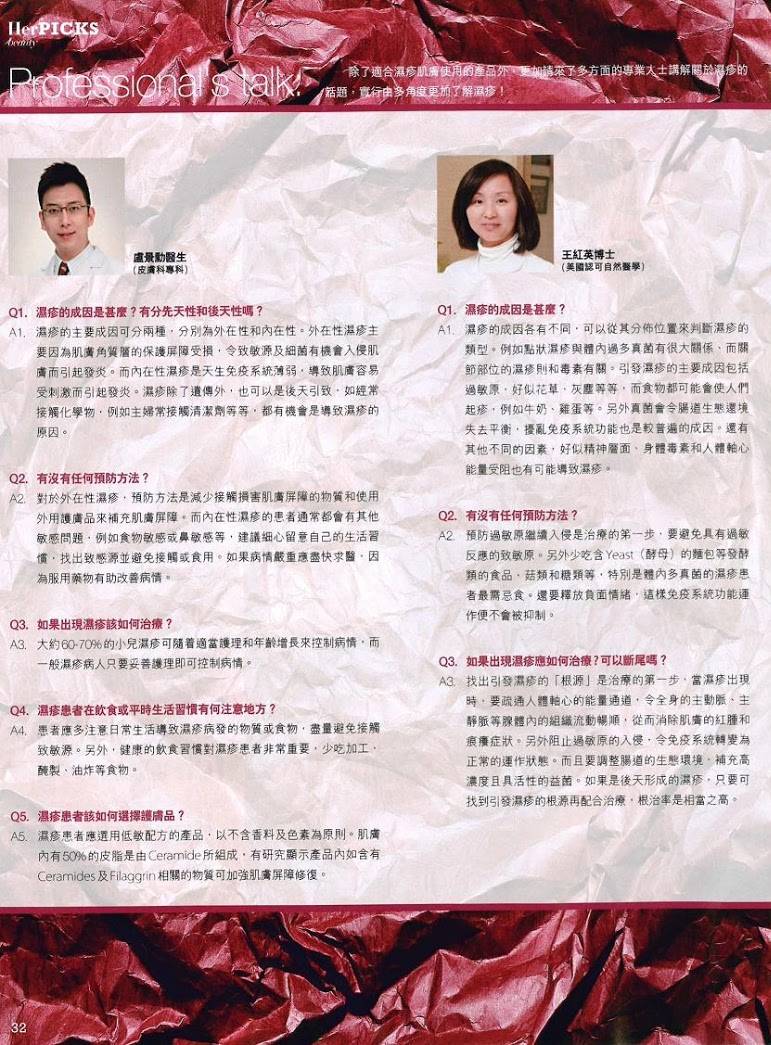 HerPICKS
beauty
Professional's talk:
除了適合濕疹肌膚使用的產品外，更加請來了多方面的專業人士講解關於濕疹的
話題，實行由多角度更加了解濕疹！
盧景勳醫生
(皮膚科專科)
Q1. 濕疹的成因是甚麼？有分先天性和後天性嗎？
A1. 濕疹的主要成因可分兩種，分別為外在性和內在性。外在性濕疹主
要因為肌膚角質層的保護屏障受損，令致敏源及細菌有機會入侵肌
膚而引起發炎。而內在性濕疹是天生免疫系統薄弱，導致肌膚容易
受刺激而引起發炎。濕疹除了遺傳外，也可以是後天引致，如經常
接觸化學物，例如主婦常接觸清潔劑等等，都有機會是導致濕疹的
原因。
Q2. 有沒有任何預防方法？
A2. 對於外在性濕疹，預防方法是減少接觸損害肌膚屏障的物質和使用
外用護膚品來補充肌膚屏障。而內在性濕疹的患者通常都會有其他
敏感問題，例如食物敏感或鼻敏感等，建議細心留意自己的生活習
慣，找出致感源並避免接觸或食用。如果病情嚴重應盡快求醫，因
為服用藥物有助改善病情。
Q3. 如果出現濕疹該如何治療？
A3. 大約60-70%的小兒濕疹可隨着適當護理和年齡增長來控制病情，而
一般濕疹病人只要妥善護理即可控制病情。
Q4. 濕疹患者在飲食或平時生活習慣有何注意地方？
A4. 患者應多注意日常生活導致濕疹病發的物質或食物，盡量避免接觸
致敏源。另外，健康的飲食習慣對濕疹患者非常重要，少吃加工、
醃製、油炸等食物。
Q5. 濕疹患者該如何選擇護膚品？
A5. 濕疹患者應選用低敏配方的產品，以不含香料及色素為原則。肌膚
內有50%的皮脂是由Ceramide所組成，有研究顯示產品內如含有
Ceramides及Filaggrin相關的物質可加強肌膚屏障修復。
王紅英博士
(美國認可自然醫學)
Q1. 濕疹的成因是甚麼？
A1. 濕疹的成因各有不同，可以從其分佈位置來判斷濕疹的
類型。例如點狀濕疹與體內過多真菌有很大關係、而關
節部位的濕疹則和毒素有關。引發濕疹的主要成因包括
過敏原，好似花草、灰塵等等，而食物都可能會使人們
起疹，例如牛奶、雞蛋等。另外真菌會令腸道生態還境
失去平衡，擾亂免疫系統功能也是較普遍的成因。還有
其他不同的因素，好似精神層面、身體毒素和人體軸心
能量受阻也有可能導致濕疹。
Q2. 有沒有任何預防方法？
A2. 預防過敏原繼續入侵是治療的第一步，要避免具有過敏
反應的致敏原。另外少吃含Yeast（酵母）的麵包等發酵
類的食品、菇類和糖類等，特別是體內多真菌的濕疹患
者最需忌食。還要釋放負面情緒，這樣免疫系統功能運
作便不會被抑制。
Q3. 如果出現濕疹應如何治療？可以斷尾嗎？
A3. 找出引發濕疹的「根源」是治療的第一步，當濕疹出現
時，要疏通人體軸心的能量通道，令全身的主動脈、主
靜脈等腺體內的組織流動暢順，從而消除肌膚的紅腫和
痕癢症狀。另外阻止過敏原的入侵，令免疫系統轉變為
正常的運作狀態。而且要調整腸道的生態環境，補充高
濃度且具活性的益菌。如果是後天形成的濕疹，只要可
找到引發濕疹的根源再配合治療，根治率是相當之高。
32